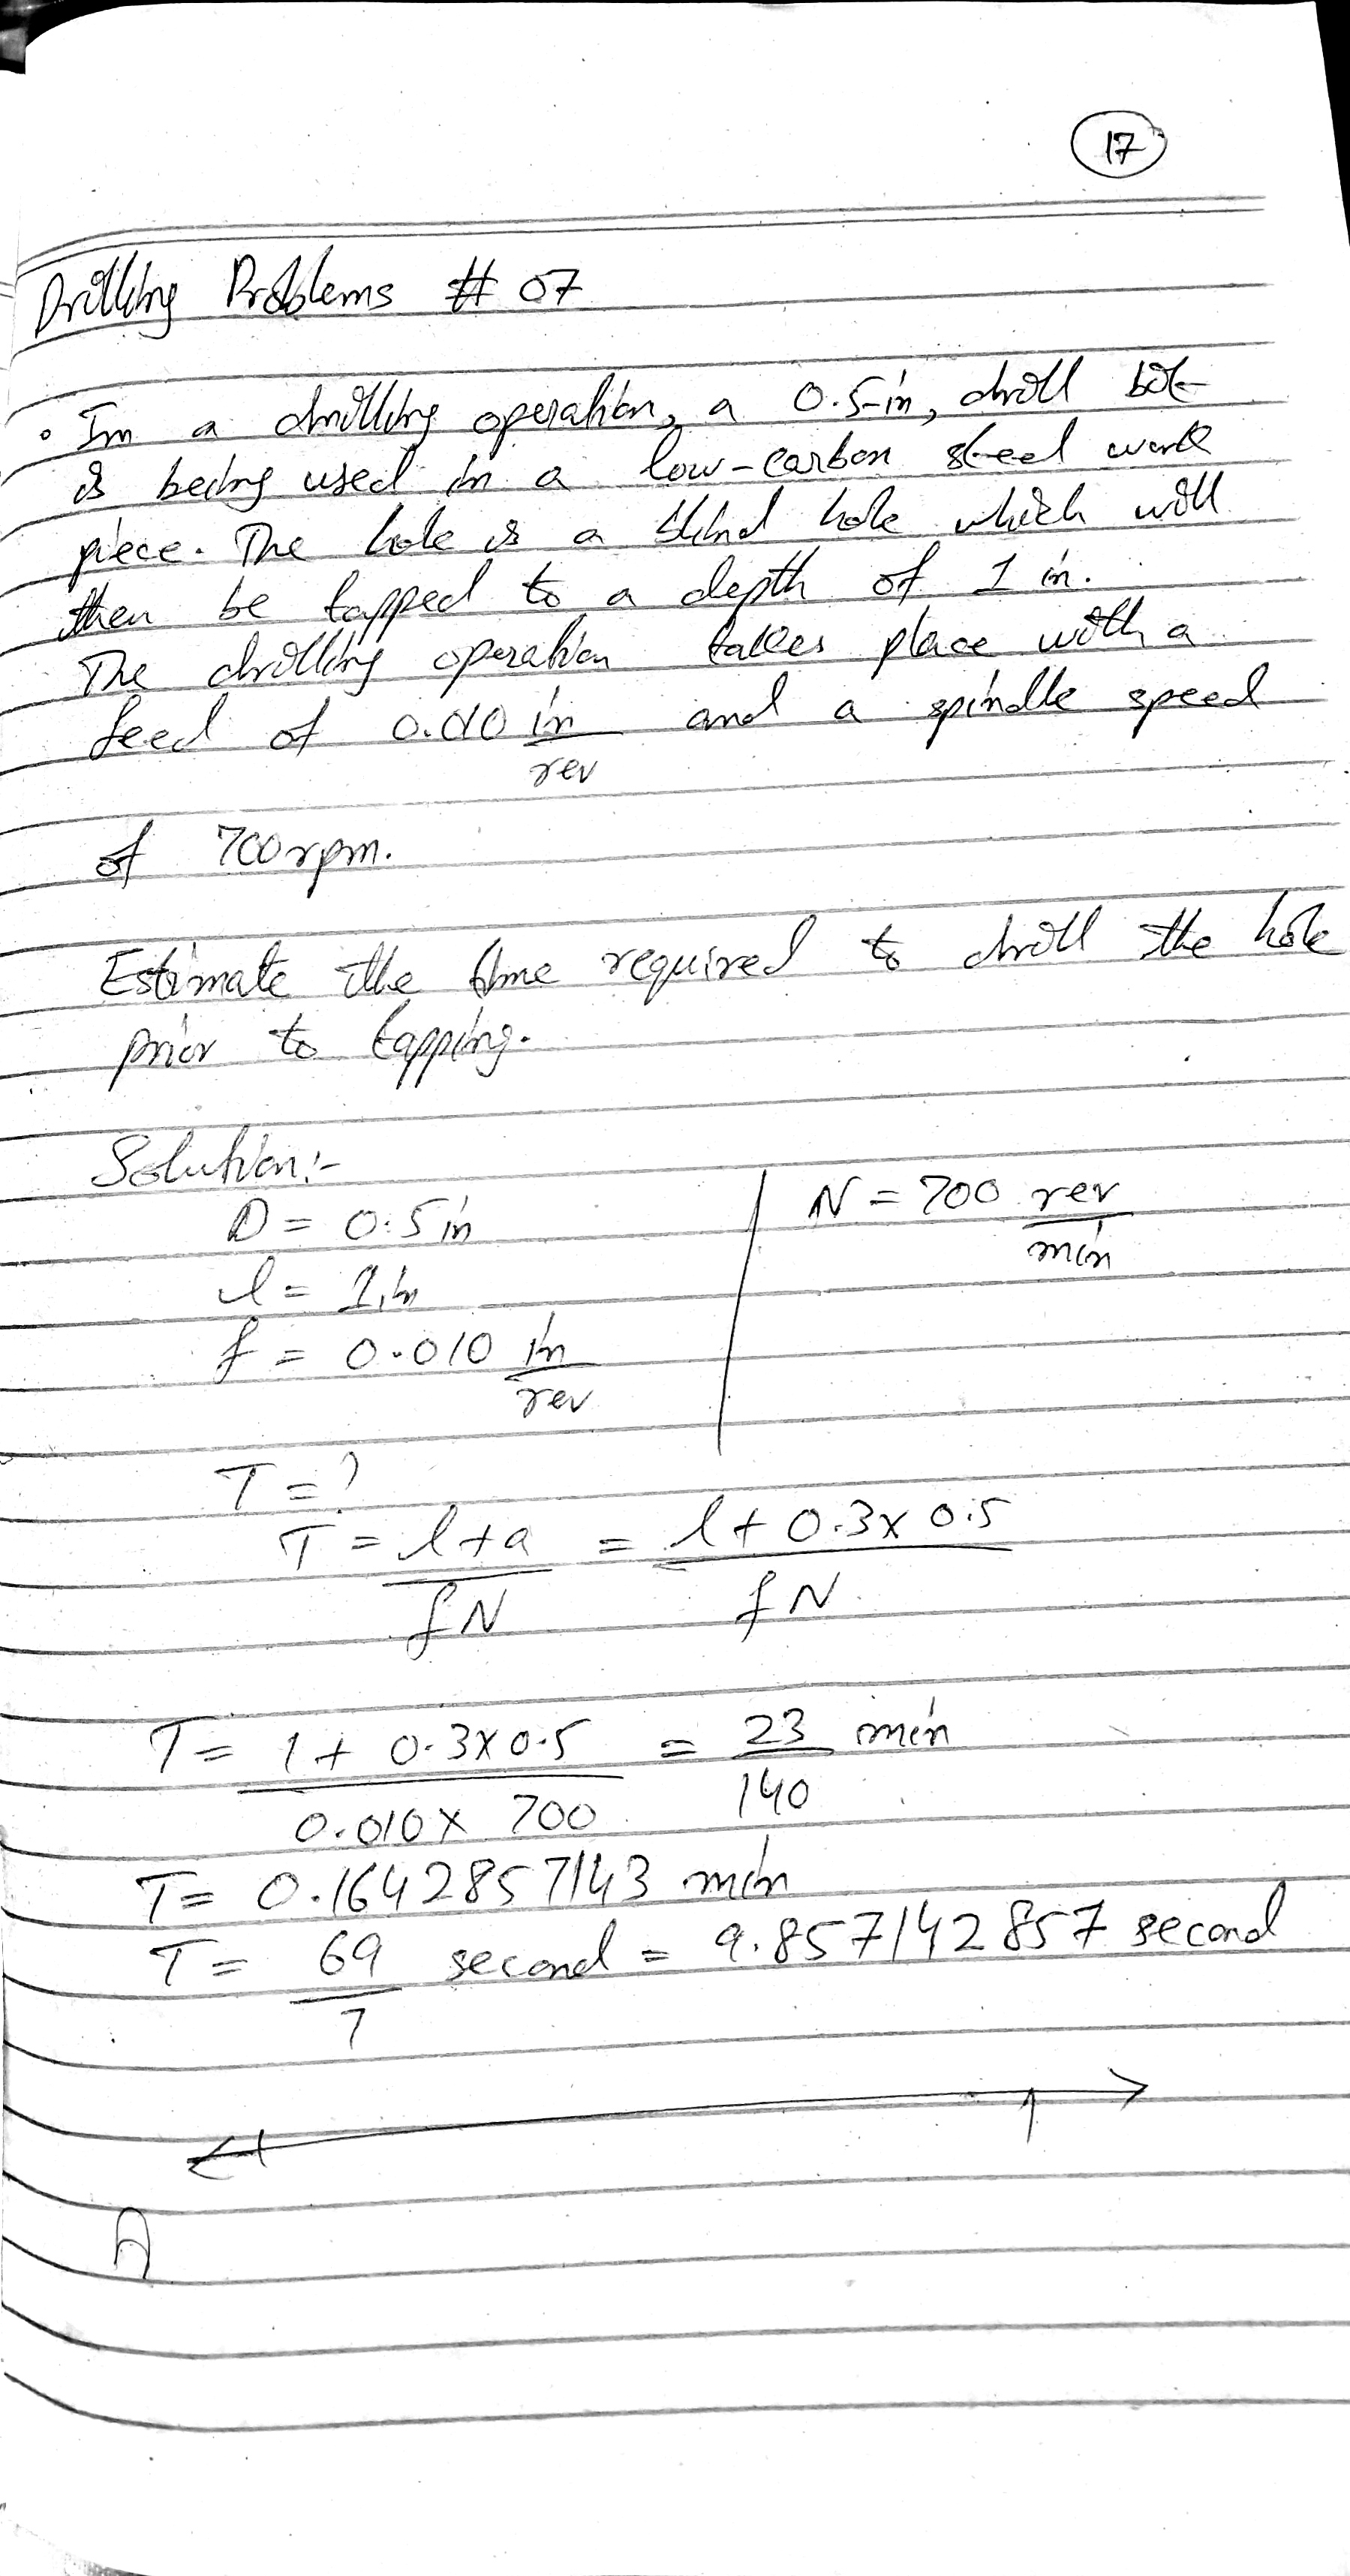 17
Drilling Problems # 07
• In a drilling operation, a 0.5-in, drill bit
is being used in a low-carbon steel work
piece. The hole is a blind hole which will
then be tapped to a depth of 1 in.
The drilling operation takes place with a
feed of 0.010 in/rev and a spindle speed
of 700 rpm.
Estimate the time required to drill the hole
prior to tapping.
Solution:-
D = 0.5 in
l = 1 in
f = 0.010 in/rev
N = 700 rev/min
T = ?
T = l+a/fN = l+0.3x0.5/fN
T = 1+0.3x0.5/0.010x700 = 23/140 min
T = 0.1642857143 min
T = 69/7 second = 9.857142857 second